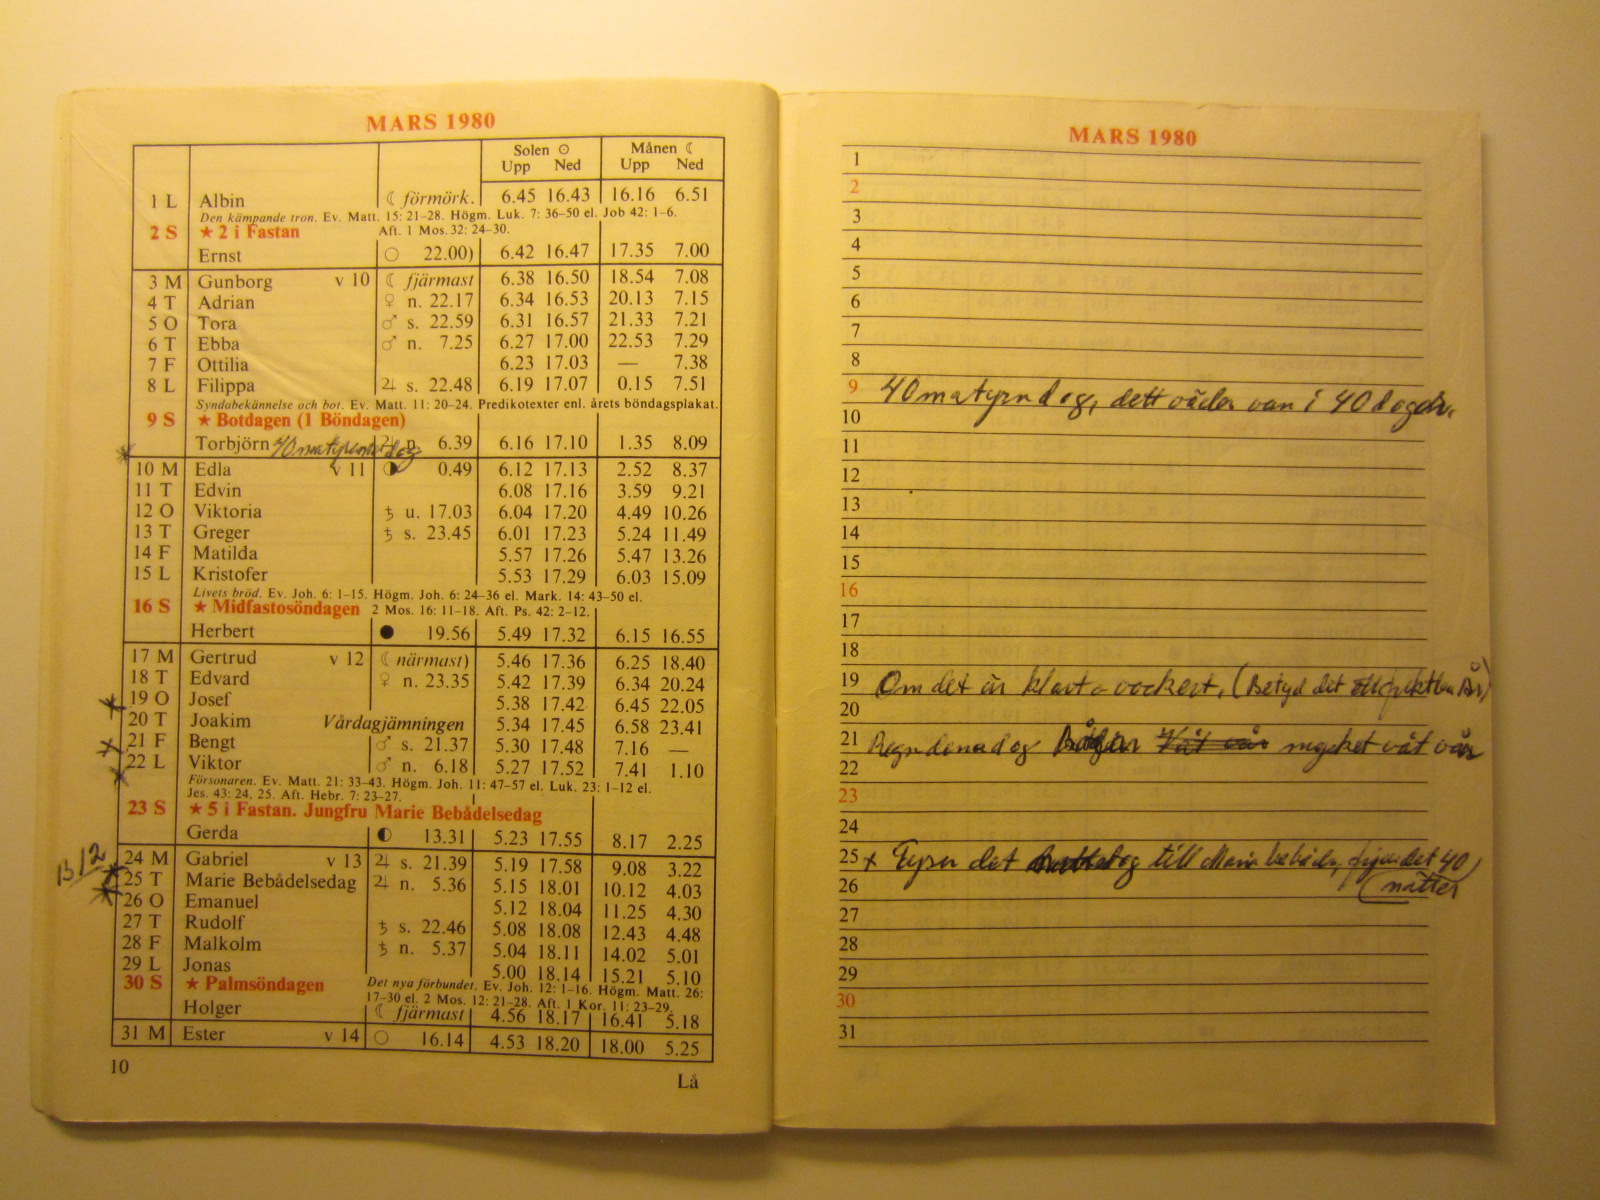 MARS 1980
Solen ☉ Månen ☾
Upp Ned Upp Ned
1 L Albin ☾ förmörk. 6.45 16.43 16.16 6.51
Den kämpande tron. Ev. Matt. 15: 21–28. Högm. Luk. 7: 36–50 el. Job 42: 1–6.
2 S ★ 2 i Fastan Aft. 1 Mos. 32: 24–30.
Ernst ○ 22.00) 6.42 16.47 17.35 7.00
3 M Gunborg v 10 ☾ fjärmast 6.38 16.50 18.54 7.08
4 T Adrian ♀ n. 22.17 6.34 16.53 20.13 7.15
5 O Tora ♂ s. 22.59 6.31 16.57 21.33 7.21
6 T Ebba ♂ n. 7.25 6.27 17.00 22.53 7.29
7 F Ottilia 6.23 17.03 — 7.38
8 L Filippa ♃ s. 22.48 6.19 17.07 0.15 7.51
Syndabekännelse och bot. Ev. Matt. 11: 20–24. Predikotexter enl. årets böndagsplakat.
9 S ★ Botdagen (1 Böndagen)
Torbjörn ♃ n. 6.39 6.16 17.10 1.35 8.09
10 M Edla v 11 ◑ 0.49 6.12 17.13 2.52 8.37
11 T Edvin 6.08 17.16 3.59 9.21
12 O Viktoria ♄ u. 17.03 6.04 17.20 4.49 10.26
13 T Greger ♄ s. 23.45 6.01 17.23 5.24 11.49
14 F Matilda 5.57 17.26 5.47 13.26
15 L Kristofer 5.53 17.29 6.03 15.09
Livets bröd. Ev. Joh. 6: 1–15. Högm. Joh. 6: 24–36 el. Mark. 14: 43–50 el.
16 S ★ Midfastosöndagen 2 Mos. 16: 11–18. Aft. Ps. 42: 2–12.
Herbert ● 19.56 5.49 17.32 6.15 16.55
17 M Gertrud v 12 ☾ närmast) 5.46 17.36 6.25 18.40
18 T Edvard ♀ n. 23.35 5.42 17.39 6.34 20.24
19 O Josef 5.38 17.42 6.45 22.05
20 T Joakim Vårdagjämningen 5.34 17.45 6.58 23.41
21 F Bengt ♂ s. 21.37 5.30 17.48 7.16 —
22 L Viktor ♂ n. 6.18 5.27 17.52 7.41 1.10
Försonaren. Ev. Matt. 21: 33–43. Högm. Joh. 11: 47–57 el. Luk. 23: 1–12 el.
Jes. 43: 24, 25. Aft. Hebr. 7: 23–27.
23 S ★ 5 i Fastan. Jungfru Marie Bebådelsedag
Gerda ◐ 13.31 5.23 17.55 8.17 2.25
24 M Gabriel v 13 ♃ s. 21.39 5.19 17.58 9.08 3.22
25 T Marie Bebådelsedag ♃ n. 5.36 5.15 18.01 10.12 4.03
26 O Emanuel 5.12 18.04 11.25 4.30
27 T Rudolf ♄ s. 22.46 5.08 18.08 12.43 4.48
28 F Malkolm ♄ n. 5.37 5.04 18.11 14.02 5.01
29 L Jonas 5.00 18.14 15.21 5.10
30 S ★ Palmsöndagen Det nya förbundet. Ev. Joh. 12: 1–16. Högm. Matt. 26:
17–30 el. 2 Mos. 12: 21–28. Aft. 1 Kor. 11: 23–29.
Holger ☾ fjärmast 4.56 18.17 16.41 5.18
31 M Ester v 14 ○ 16.14 4.53 18.20 18.00 5.25
10
Lå
MARS 1980
1
2
3
4
5
6
7
8
9 40 matyrndag, dett väder van i 40 dagar.
10
11
12
13
14
15
16
17
18
19 Om det är klart o vackert. (Betyd det
20
21 mycket våt vår
22
23
24
25 x Fryser det till Marie bebåd, det 40
26 nätter
27
28
29
30
31